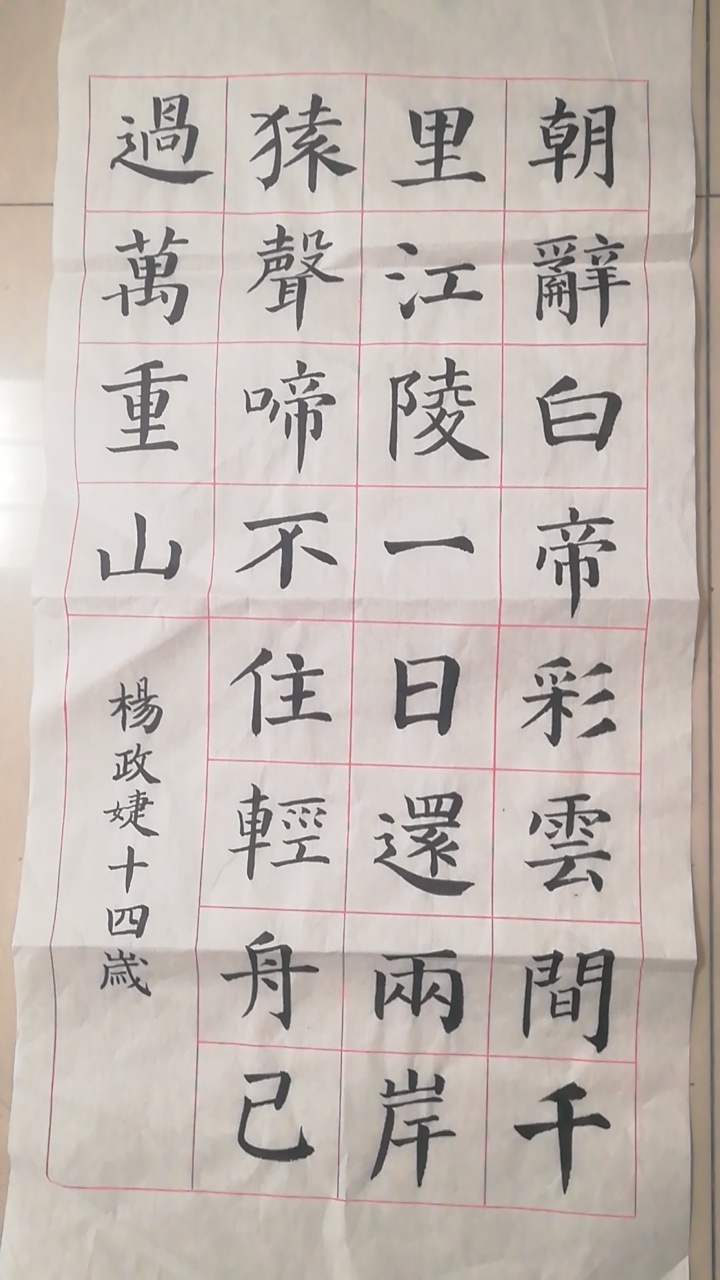 朝辭白帝彩雲間千
里江陵一日還兩岸
猿聲啼不住輕舟已
過萬重山
楊政婕十四歲